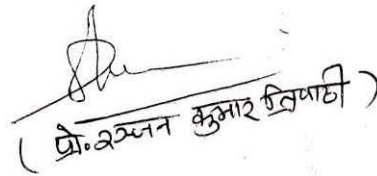 ( प्रो. रञ्जन कुमार त्रिपाठी )